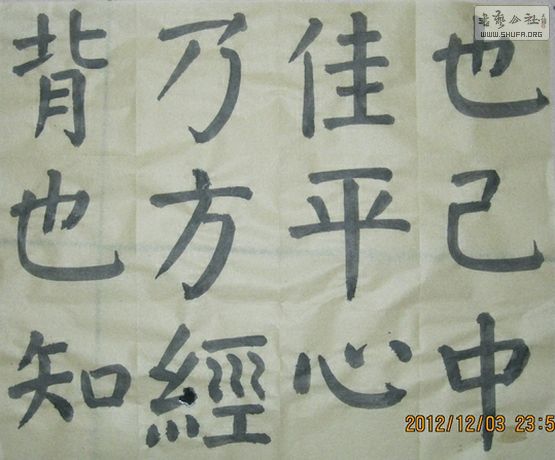 也己中
佳平心
乃方經
背也知
書藝公社
WWW.SHUFA.ORG
2012/12/03 23:5